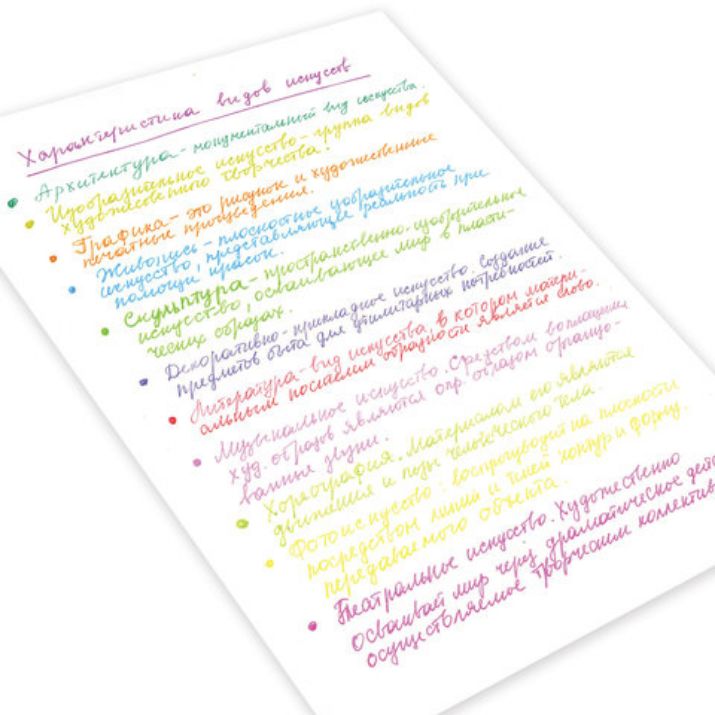 Характеристика видов искусств
• Архитектура - монументальный вид искусства.
• Изобразительное искусство - группа видов
художественного творчества.
• Графика - это рисунок и художественные
печатные произведения.
• Живопись - плоскостное изобразительное
искусство, представляющее реальность при
помощи красок.
• Скульптура - пространственно-изобразительное
искусство, осваивающее мир в пласти-
ческих образах.
• Декоративно-прикладное искусство. Создание
предметов быта для утилитарных потребностей.
• Литература - вид искусства, в котором матери-
альным носителем образности является слово.
• Музыкальное искусство. Средством воплощения
худ. образов являются опр. образом организо-
ванные звуки.
• Хореография. Материалом его являются
движения и позы человеческого тела.
• Фотоискусство: воспроизводит на плоскости
посредством линий и теней контур и форму
передаваемого объекта.
• Театральное искусство. Художественно
осваивает мир через драматическое
осуществляемое творческим